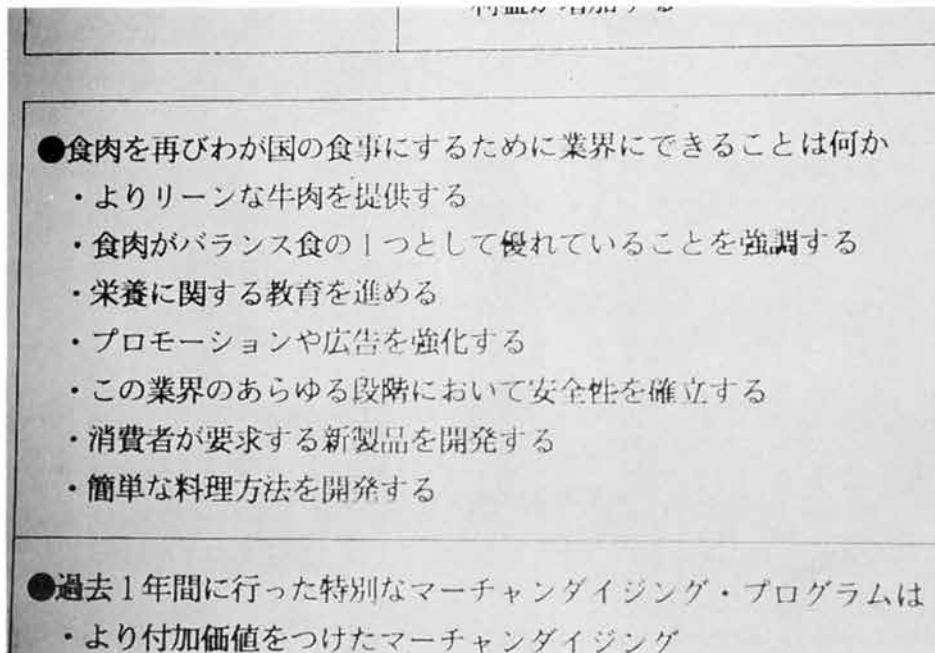 利益が増加する
●食肉を再びわが国の食事にするために業界にできることは何か
・よりリーンな牛肉を提供する
・食肉がバランス食の1つとして優れていることを強調する
・栄養に関する教育を進める
・プロモーションや広告を強化する
・この業界のあらゆる段階において安全性を確立する
・消費者が要求する新製品を開発する
・簡単な料理方法を開発する
●過去1年間に行った特別なマーチャンダイジング・プログラムは
・より付加価値をつけたマーチャンダイジング